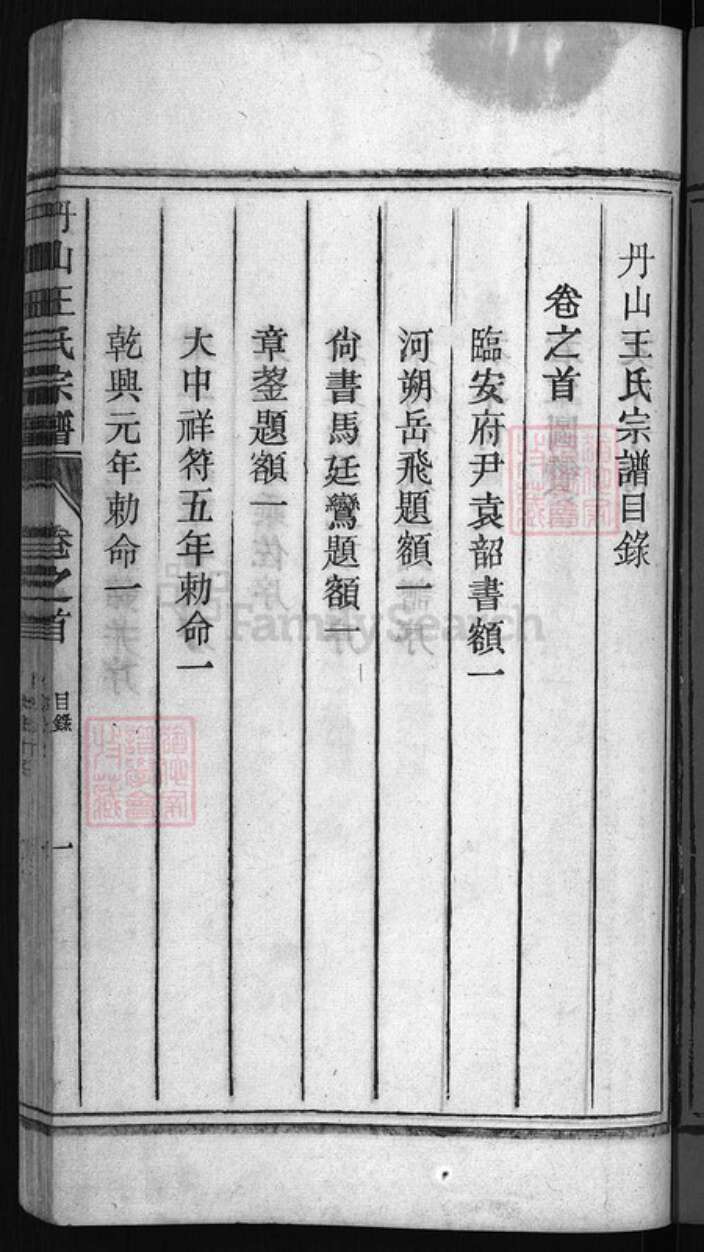 丹山王氏宗譜目錄
卷之首
臨安府尹袁韶書額一
河朔岳飛題額一
尙書馬廷鸞題額一
章鋆題額一
大中祥符五年勅命一
乾興元年勅命一
丹山王氏宗譜
卷之首
目錄
一
FamilySearch